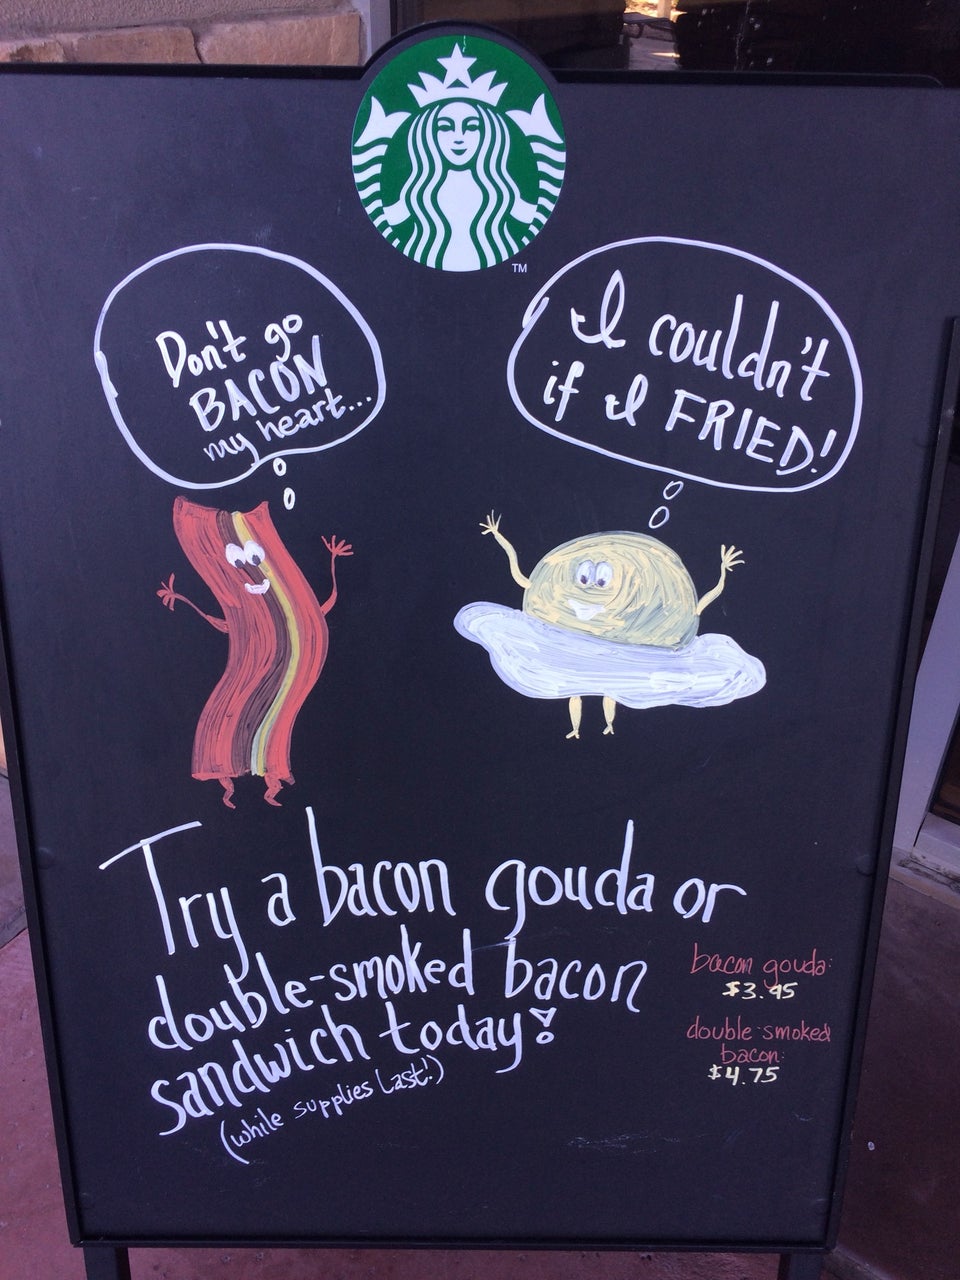 TM
Don't go
BACON
my heart...
I couldn't
if I FRIED!
Try a bacon gouda or
double-smoked bacon
sandwich today!
(while supplies last!)
bacon gouda:
$3.95
double-smoked
bacon:
$4.75